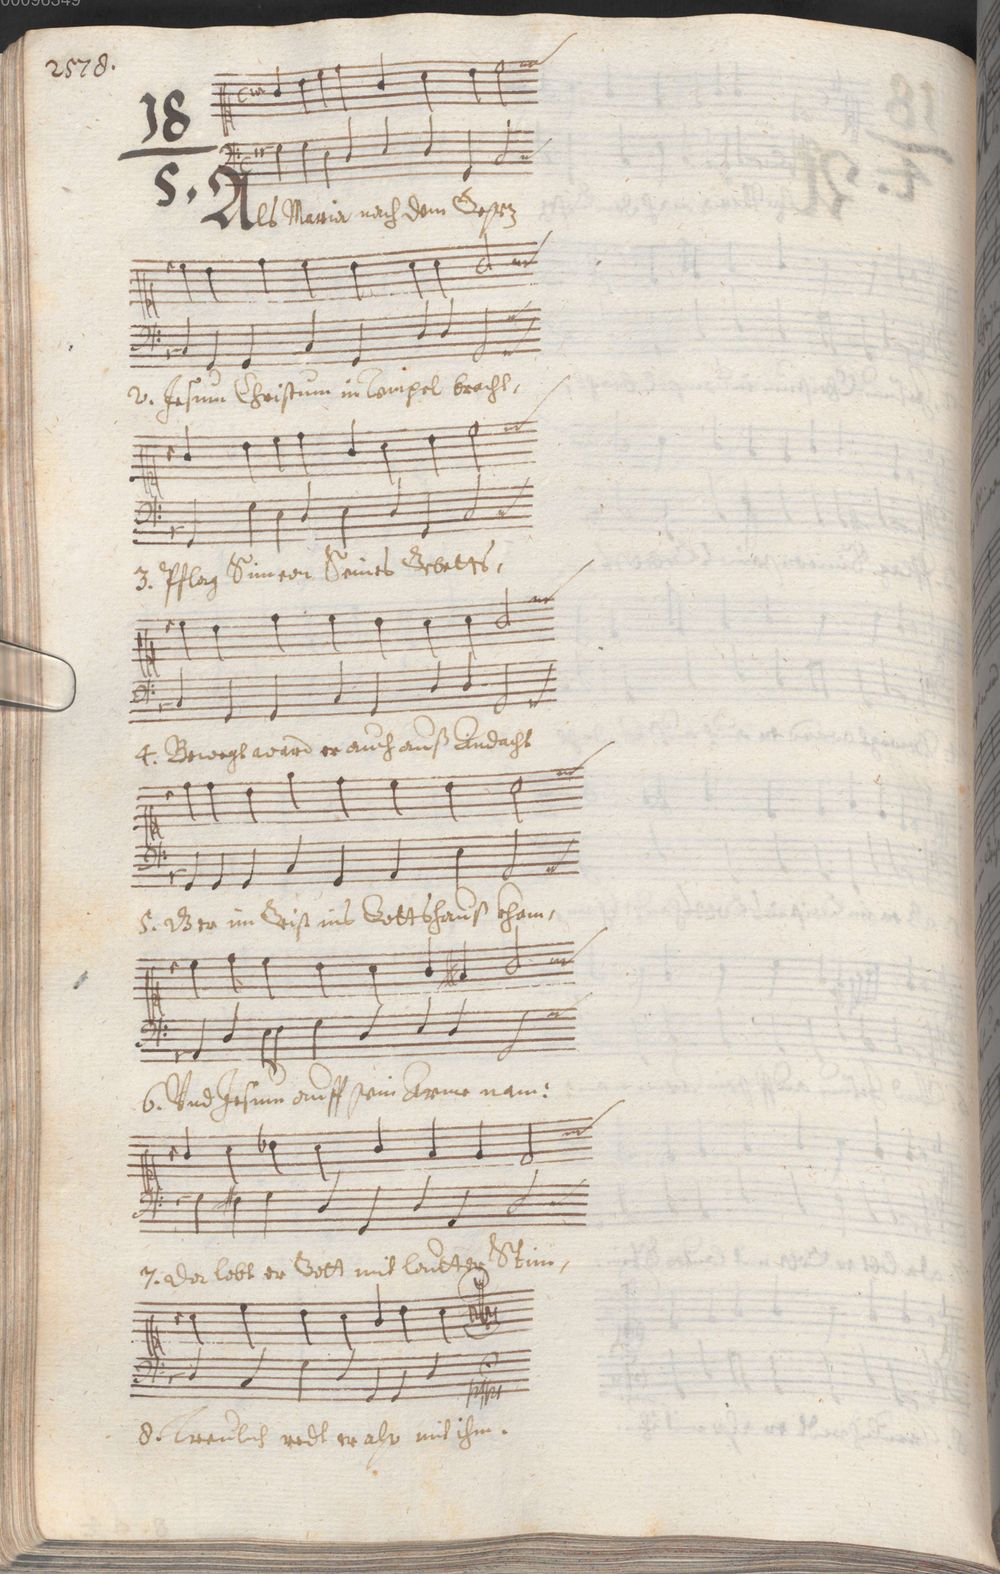 00096349
2578.
18
5. Als Maria nach dem Gesetz
2. Jesum Christum in Tempel bracht,
3. Pflag Simeon Seines Gebetts,
4. Bewegt ward er auch auß Andacht
5. Der im Geist ins Gottshauß kham,
6. Vnd Jesum auff sein Arme nam:
7. Da lobt er Gott mit lautter Stim,
8. Treulich redt er also mit ihm.